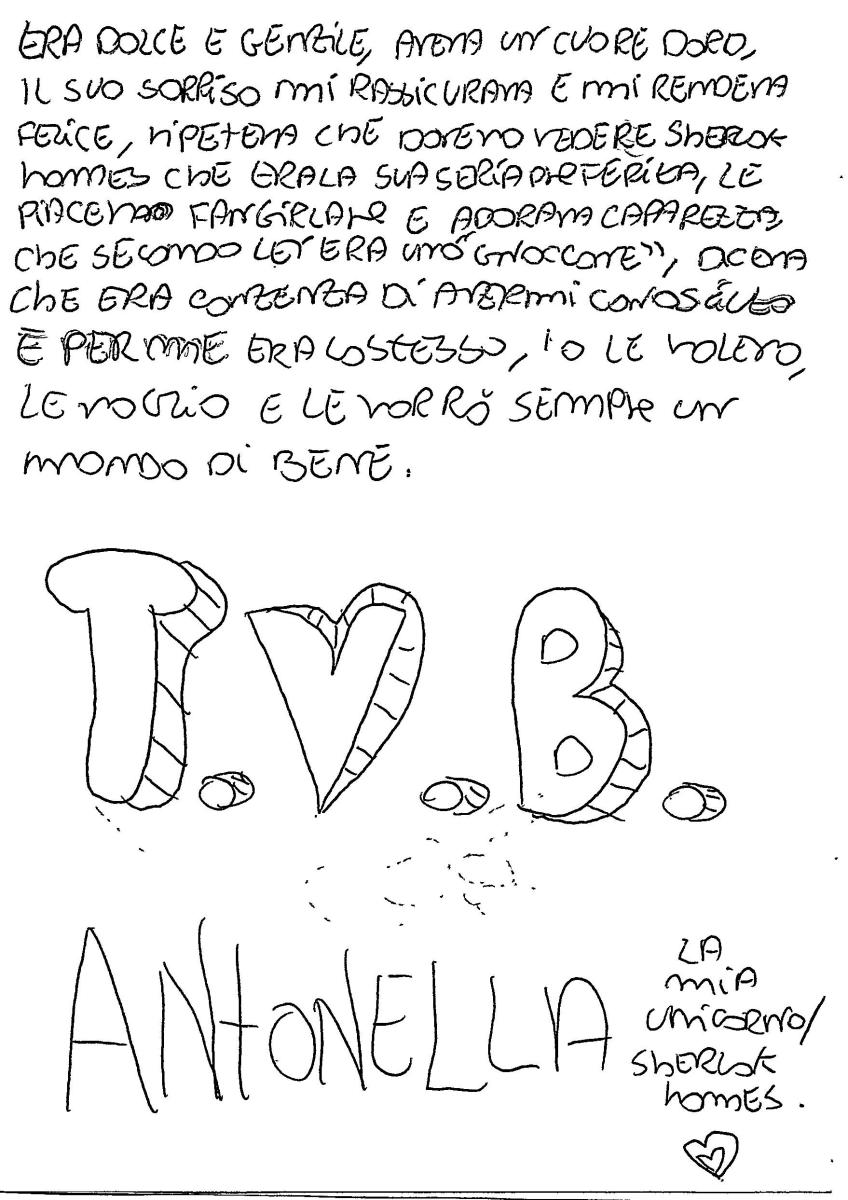 ERA DOLCE E GENTILE, AVEVA UN CUORE DORO,
IL SUO SORRISO MI RASSICURAVA E MI RENDEVA
FELICE, RIPETEVA CHE DOVEVO VEDERE SHERLOK
HOMES CHE ERA LA SUA SERIA PREFERITA, LE
PIACEVA FANGIRLARE E ADORAVA CAPAREZZA
CHE SECONDO LEI ERA UNO "GNOCCONE", DICEVA
CHE ERA CONTENTA DI AVERMI CONOSCIUTO
E PER ME ERA LO STESSO, IO LE VOLEVO,
LE VOGLIO E LE VORRÒ SEMPRE UN
MONDO DI BENE.
T.V.B.
ANTONELLA
LA
MIA
UNICORNO/
SHERLOK
HOMES.